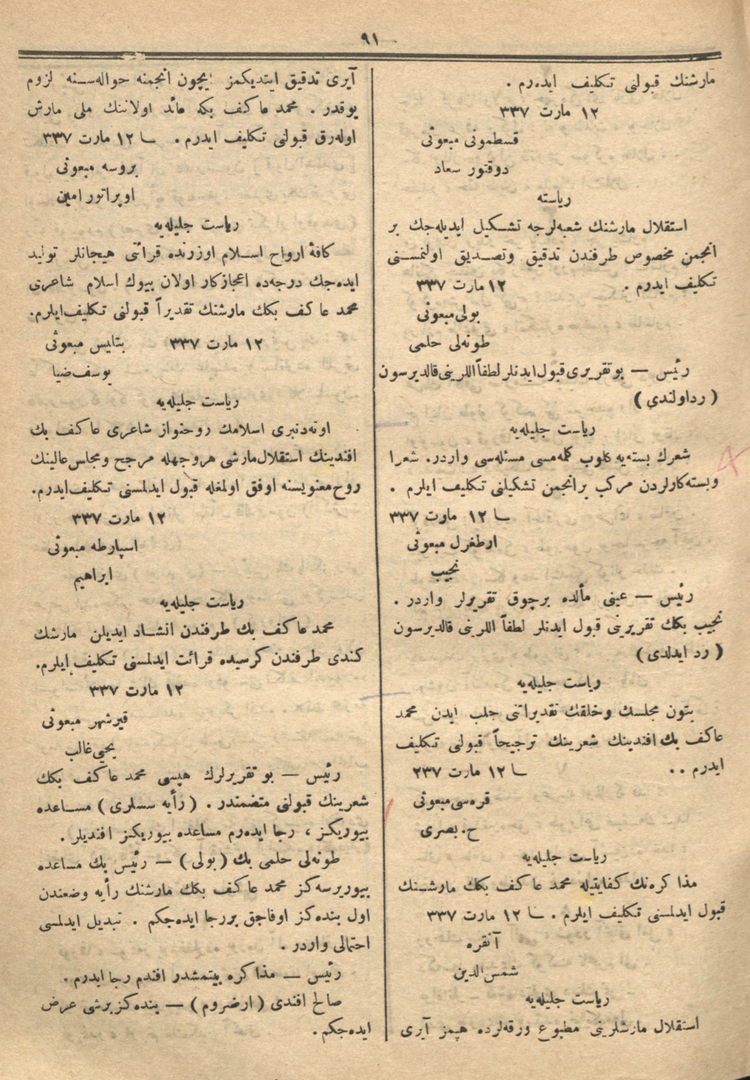 — ٩١
مارشنك قبولنی تكلیف ایدەرم .
١٢ مارت ٣٣٧
قسطمونی مبعوثی
دوقتور سعاد
ریاسته
استقلال مارشنك شعبه‌لرجه تشكیل ایدیله‌جك بر
انجمن مخصوص طرفندن تدقیق وتصدیق اولنمسنی
تكلیف ایدرم . ١٢ مارت ٣٣٧
بولی مبعوثی
طونه‌لی حلمی
رئیس — بو تقریری قبول ایدنلر لطفاً اللرینی قالدیرسون
( رد اولندی )
ریاست جلیله‌یه
شعرك بسته‌یه كلوب كلمه‌مسی مسئله‌سی واردر . شعرا
وبسته‌كارلردن مركب برانجمن تشكیلنی تكلیف ایلرم .
١٢ مارت ٣٣٧
ارطغرل مبعوثی
نجیب
رئیس — عینی مآلده برچوق تقریرلر واردر .
نجیب بكك تقریرینی قبول ایدنلر لطفاً اللرینی قالدیرسون
( رد ایدلدی )
ریاست جلیله‌یه
بتون مجلسك وخلقك تقدیراتنی جلب ایدن محمد
عاكف بك افندینك شعرینك ترجیحاً قبولنی تكلیف
ایدرم .. ١٢ مارت ٢٣٧
قره‌سی مبعوثی
ح . بصری
ریاست جلیله‌یه
مذاكره‌نك كفایتیله محمد عاكف بكك مارشنك
قبول ایدلمسنی تكلیف ایلرم . ١٢ مارت ٣٣٧
آنقره
شمس‌الدین
ریاست جلیله‌یه
استقلال مارشلرینی مطبوع ورقه‌لرده هپمز آیری
آیری تدقیق ایتدیكمز ایچون انجمنه حواله‌سنه لزوم
یوقدر . محمد عاكف بكه عائد اولاننك ملی مارش
اوله‌رق قبولنی تكلیف ایدرم . ١٢ مارت ٣٣٧
بروسه مبعوثی
اوپراتور امین
ریاست جلیله‌یه
كافهٔ ارواح اسلام اوزرنده قرائتی هیجانلر تولید
ایده‌جك درجه‌ده اعجازكار اولان بیوك اسلام شاعری
محمد عاكف بكك مارشنك تقدیراً قبولنی تكلیف ایلرم .
١٢ مارت ٣٣٧ بتلیس مبعوثی
یوسف ضیا
ریاست جلیله‌یه
اوته‌دنبری اسلامك روحنواز شاعری عاكف بك
افندینك استقلال مارشی هروجهله مرجح ومجلس عالینك
روح معنویسنه اوفق اولمغله قبول ایدلمسنی تكلیف ایدرم .
١٢ مارت ٣٣٧
اسپارطه مبعوثی
ابراهیم
ریاست جلیله‌یه
محمد عاكف بك طرفندن انشاد ایدیلن مارشك
كندی طرفندن كرسیده قرائت ایدلمسنی تكلیف ایلرم .
١٢ مارت ٣٣٧
قیرشهر مبعوثی
یحیی غالب
رئیس — بو تقریرلرك هپسی محمد عاكف بكك
شعرینك قبولنی متضمندر . ( رأیه سسلری ) مساعده
بیوریكز ، رجا ایده‌رم مساعده بیوریكز افندیلر .
طونه‌لی حلمی بك ( بولی ) — رئیس بك مساعده
بیوریرسه‌كز محمد عاكف بكك مارشنك رأیه وضعندن
اول بنده‌كز اوفاجق بر رجا ایده‌جكم . تبدیل ایدلمسی
احتمالی واردر .
رئیس — مذاكره بیتمشدر افندم رجا ایدرم .
صالح افندی ( ارضروم ) — بنده‌كز برشی عرض
ایده‌جكم .